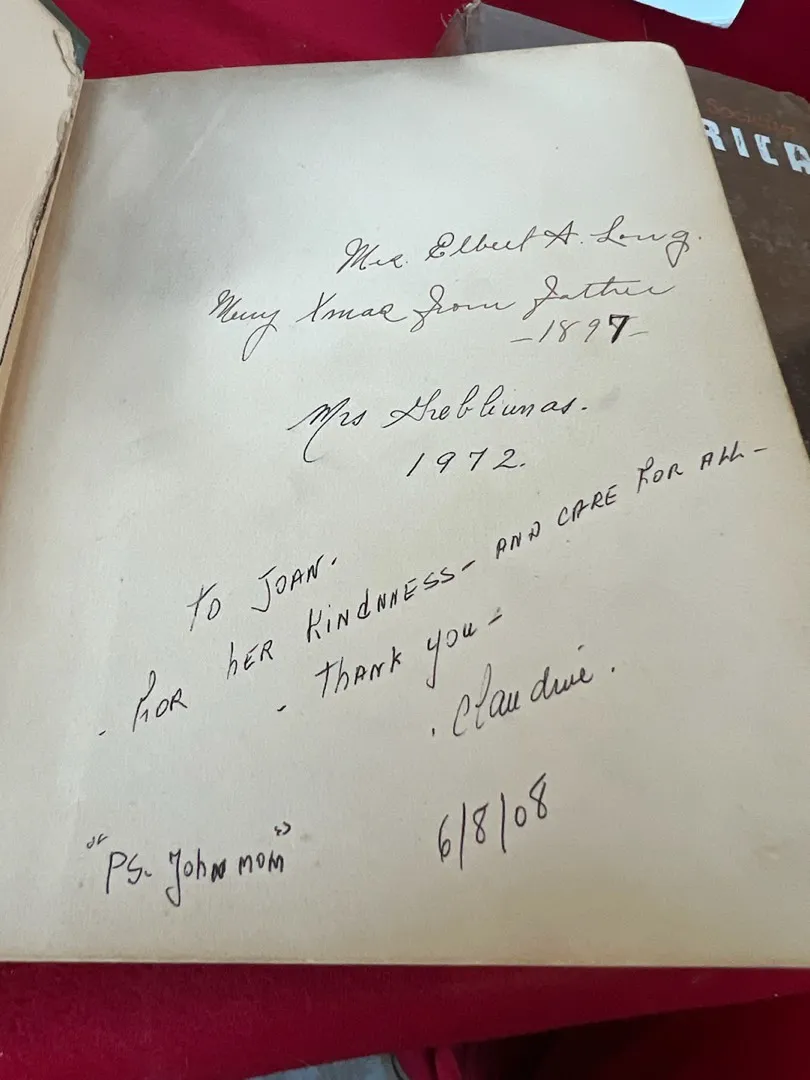 Mrs. Elbert A. Long.
Merry Xmas from Father
-1897-
Mrs Grebliunas.
1972.
TO JOAN.
- FOR hER KiNdNNESS - ANd CARE FOR ALL -
- ThANK you -
. Claudine.
"PS. John MOM"
6/8/08
RICA